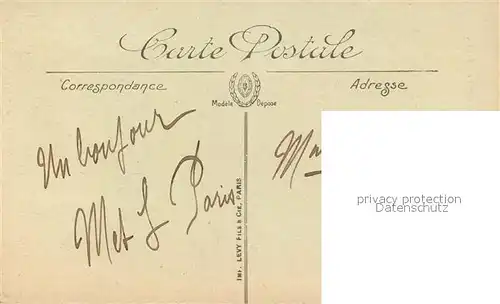 Carte Postale
Correspondance
Adresse
Modèle Déposé
Un bonjour
M et J Paris
IMP. LEVY FILS & CIE, PARIS
privacy protection
Datenschutz